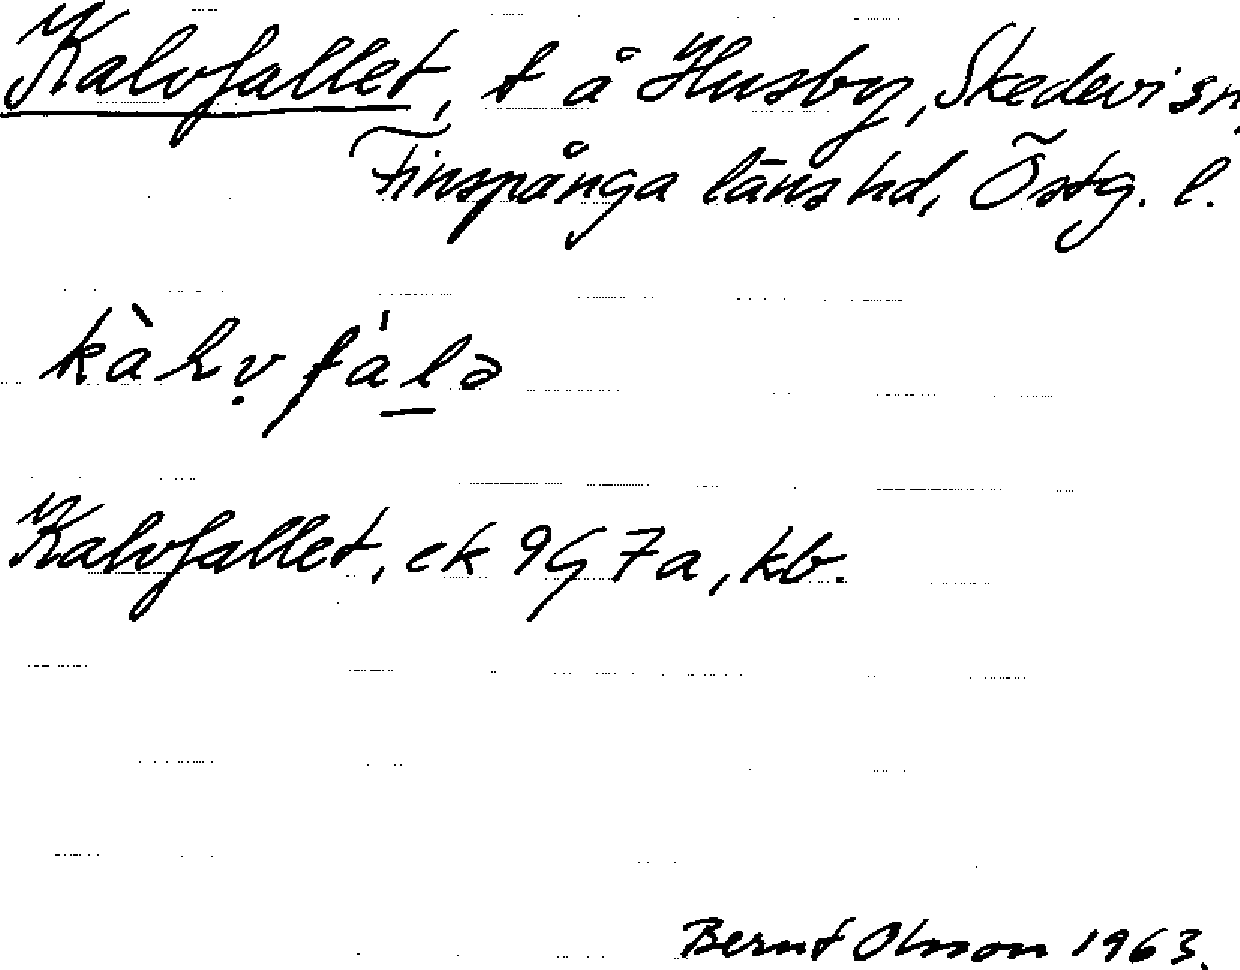 Kalvfallet, t å Husby, Skedevi sn,
Finspånga läns hd, Östg. l.
kàlṿfálə
Kalvfallet, ek 9G7a, kb.
Bernt Olsson 1963.